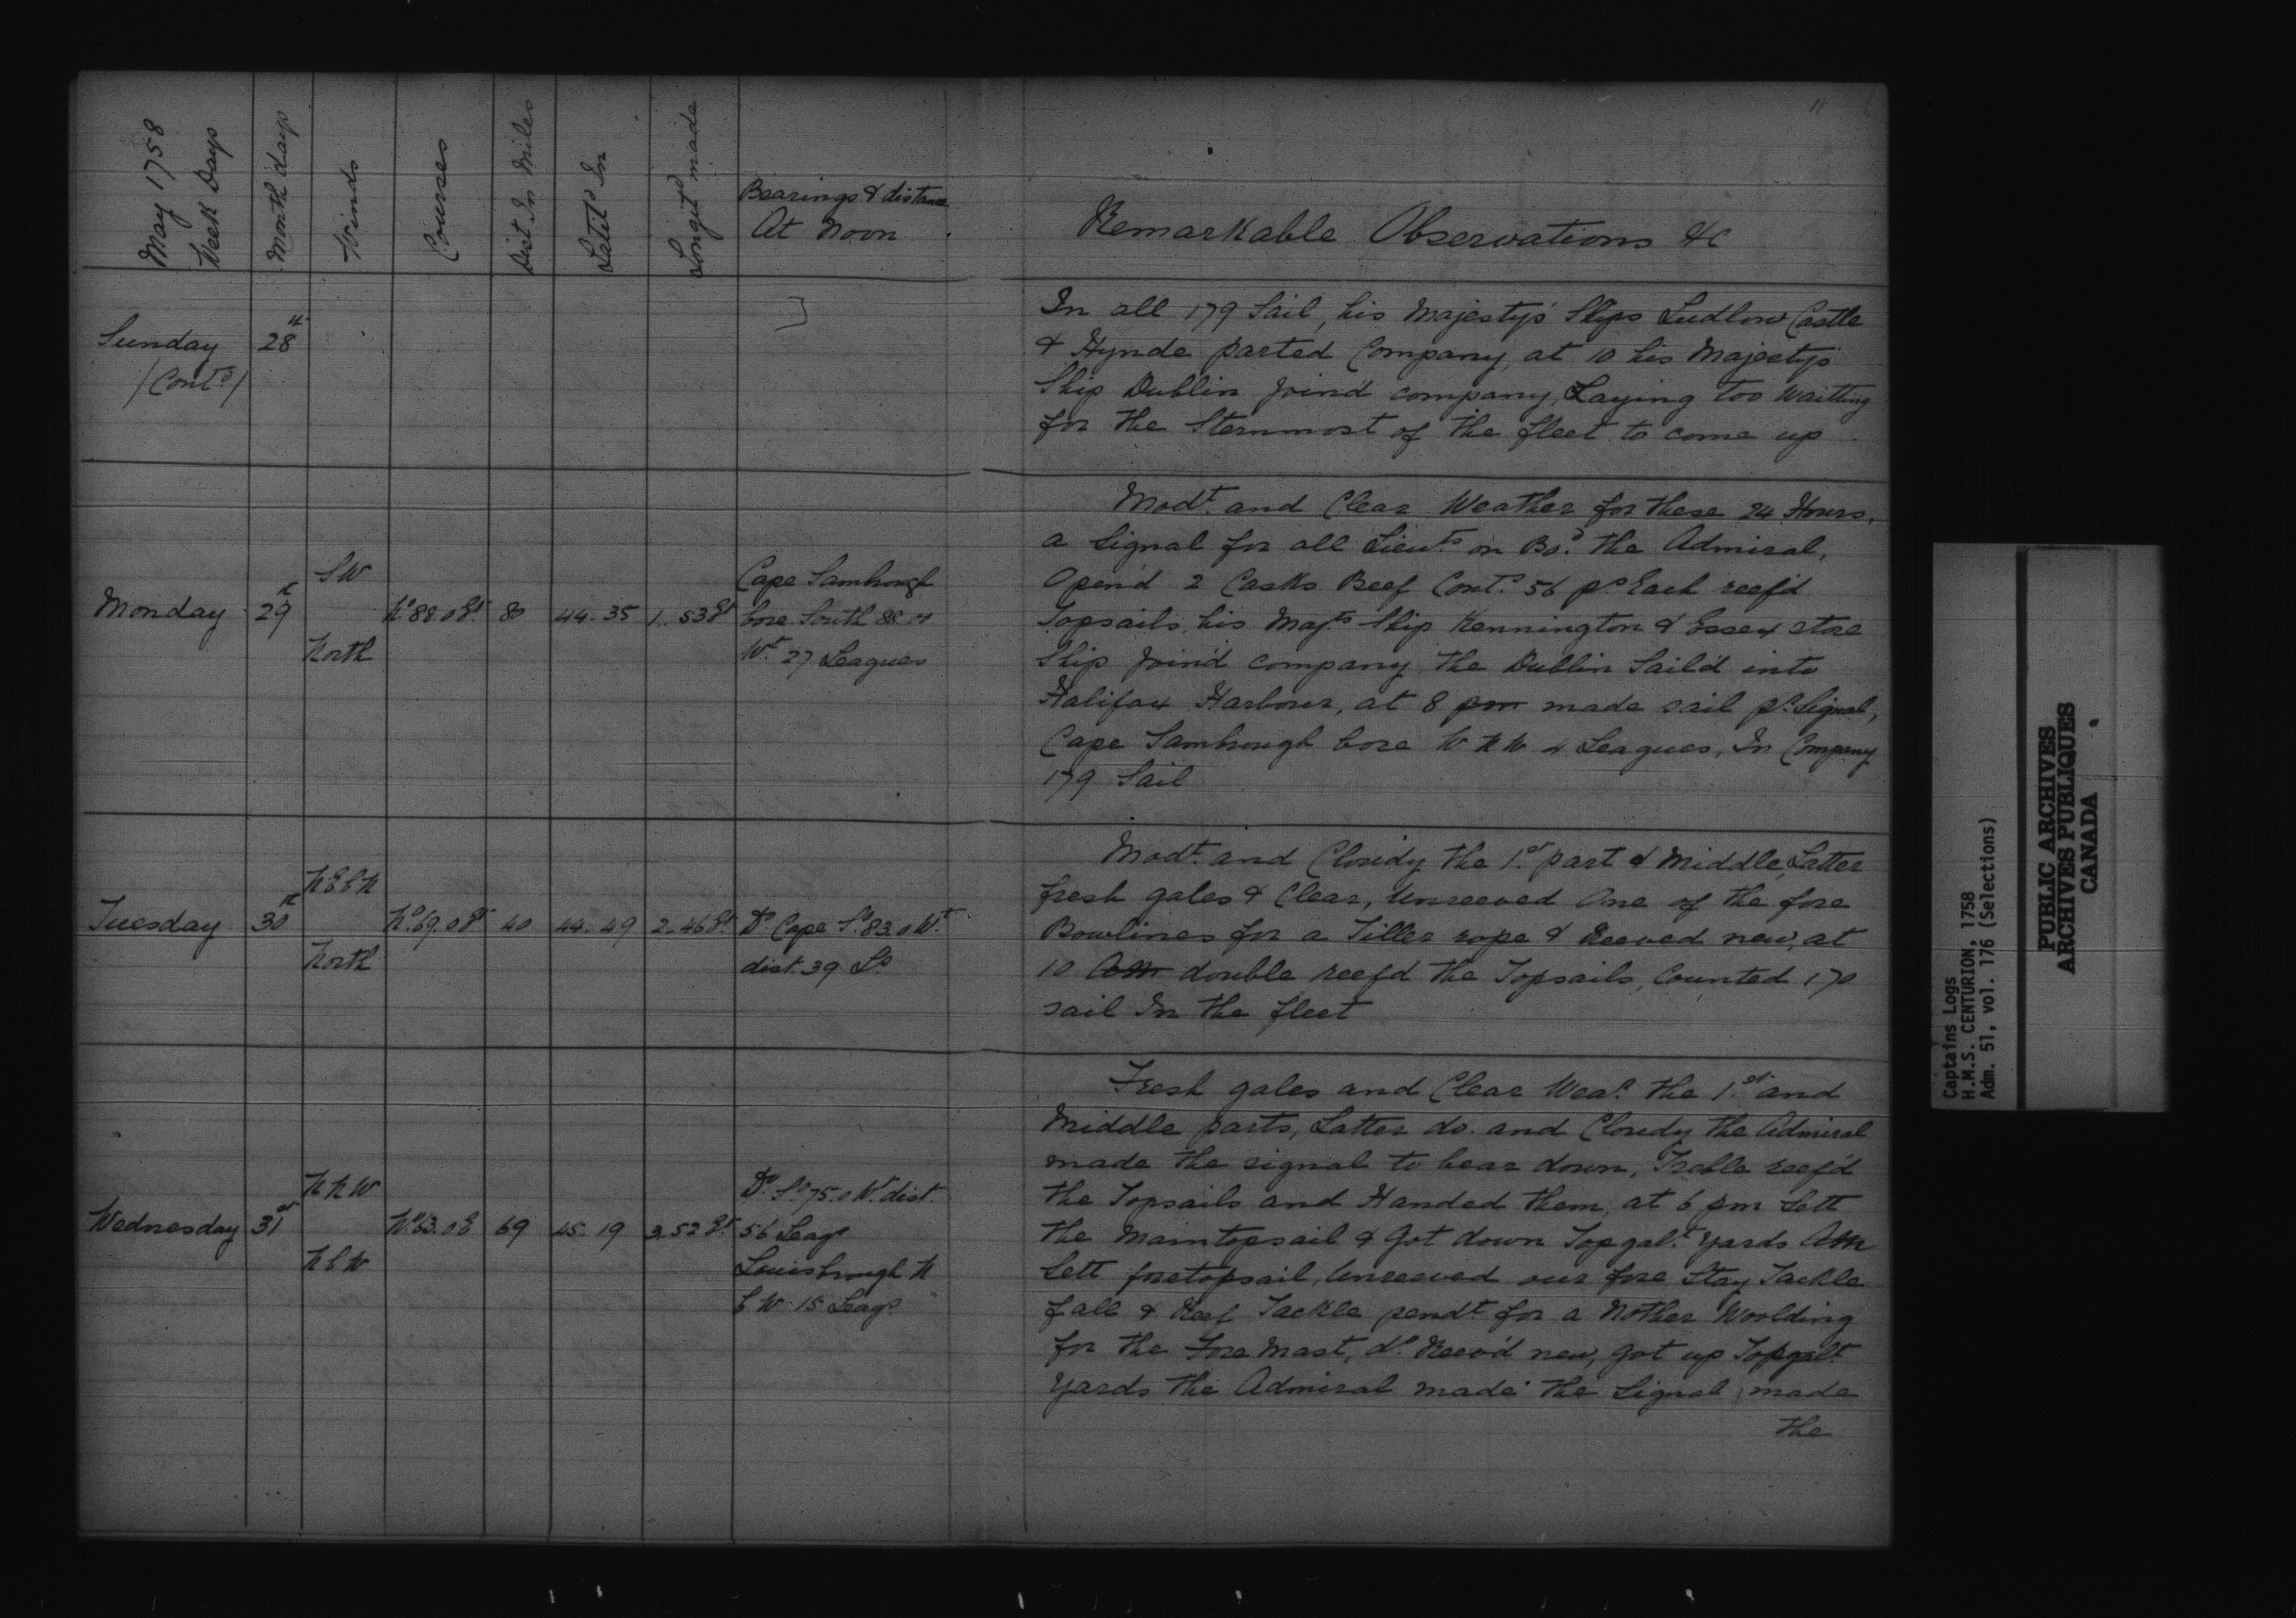 11
May 1758
Week Days
Month days
Winds
Courses
Dist In Miles
Latitd In
Longitd made
Bearings & distance
At Noon
Remarkable Observations &c
Sunday
/Contd/
28th
In all 179 Sail, his Majestys Ships Ludlow Castle
& Hynde parted Company, at 10 his Majestys
Ship Dublin joind company, Laying too waitting
for the Sternmost of the fleet to come up
Monday
29th
SW
North
No 88.0 Et
80
44.35
1.53 Et
Cape Sambrough
bore South 88
Wt 27 Leagues
Modt and Clear Weather for these 24 Hours,
a Signal for all Lieuts on Bod the Admiral,
Open'd 2 Casks Beef Contd 56 ps Each reef'd
Topsails, his Majts Ship Kennington & Essex store
Ship join'd company, the Dublin Sail'd into
Halifax Harbour, at 8 pm made sail pr Signal,
Cape Sambrough bore W N W 4 Leagues, In Company
179 Sail
Tuesday
30th
N E b N
North
No 69.0 Et
40
44.49
2.46 Et
Do Cape So 83.0 Wt
dist 39 Ls
Modt and Cloudy the 1st part & Middle, Latter
fresh gales & Clear, Unreeved One of the fore
Bowlines for a Tiller rope & Reeved new, at
10 AM double reef'd the Topsails, Counted 170
sail In the fleet
Wednesday
31st
N N W
N b W
No 63.0 E
69
45.19
3.52 Et
Do So 75.0 Wt dist
56 Leags
Louisbrough N
b W 15 Leags
Fresh gales and Clear Wear the 1st and
Middle parts, Latter do. and Cloudy the Admiral
made the signal to bear down, Treble reef'd
the Topsails and Handed them, at 6 pm Sett
the Maintopsail & Got down Topgalt Yards AM
Sett foretopsail, Unreeved our fore Stay Tackle
fall & Reef Tackle pendt for a Nother Woolding
for the Fore Mast, do Reev'd new, got up Topgalt
Yards the Admiral made the Signal, made
the
Captains Logs
H.M.S. CENTURION, 1758
Adm. 51, vol. 176 (Selections)
PUBLIC ARCHIVES
ARCHIVES PUBLIQUES
CANADA